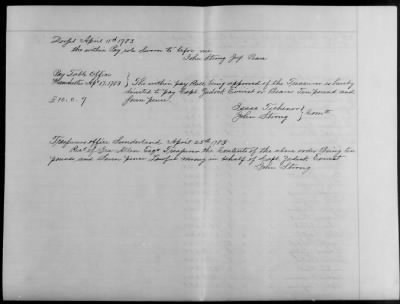 Dorset April 11th 1783
the within Pay role Sworn to before me
John Strong Jus Peace
Pay Table Office
Manchester Apl 17. 1783 } The within pay Roll, being approved of the Treasurer is hereby
directed to pay Capt. Zadock Everest or Bearer Ten pound and
£10. 0. 7 Seven pence.
Isaac Tichenor
John Strong } Comtt
Treasurers office Sunderland April 25th 1783
Recd of Ira Allen Esqr Treasurer the Contents of the above order being ten
pounds and Seven pence Lawful money in behalf of Capt. Zadock Everest
John Strong